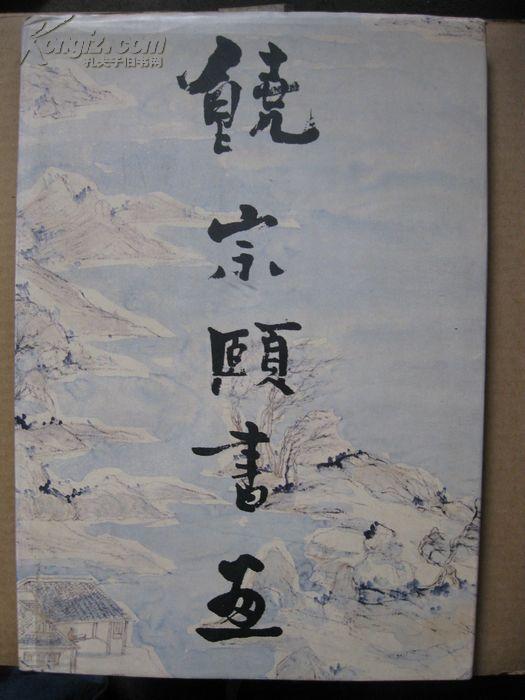 Kongfz.com
孔夫子旧书网
饒宗頤書画